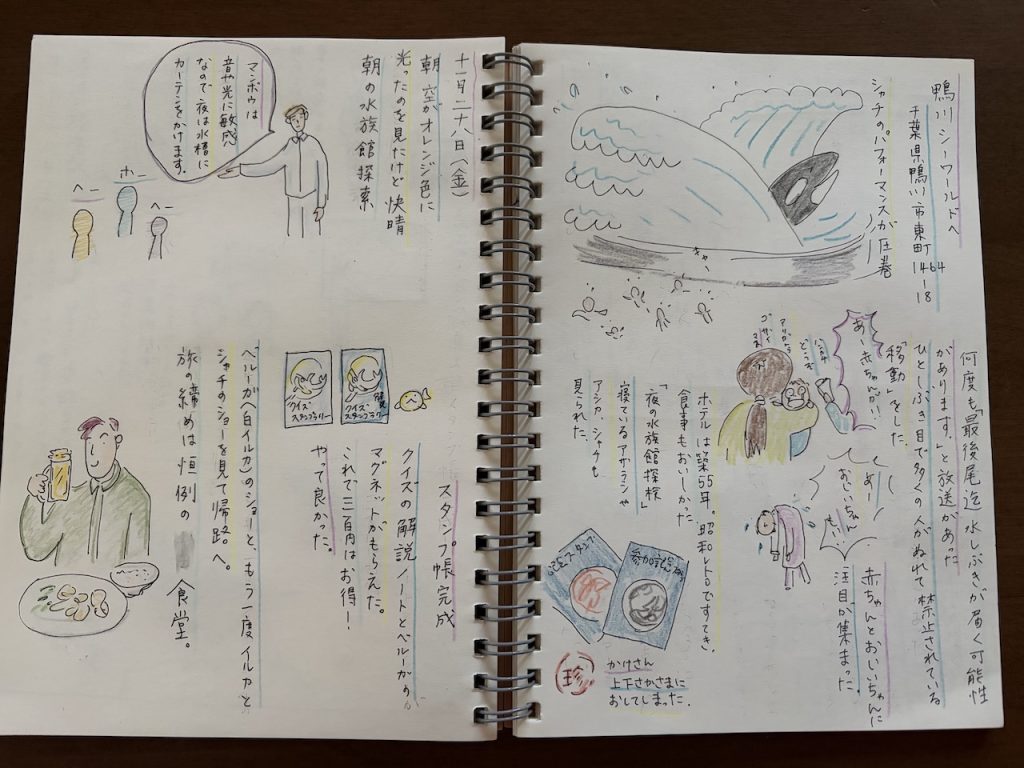 鴨川シーワールドへ
千葉県鴨川市東町1464-18
シャチのパフォーマンスが圧巻
きゃー
何度も「最後尾迄水しぶきが届く可能性
があります。」と放送があった
ひとしぶき目で多くの人がぬれて禁止されている
「移動」をした。
あー赤ちゃんがい…
どうぞ
ありがとう
ございます
あー
おじいちゃん
が…
赤ちゃんとおじいちゃんに
注目が集まった
ホテルは築55年。昭和レトロですてき。
食事もおいしかった
「夜の水族館探検」
寝ているアザラシや
アシカ、シャチも
見られた。
スタンプ
参加記念
珍
かけさん
上下さかさまに
おしてしまった。
十一月二十八日(金)
朝 空がオレンジ色に
光ったのを見たけど快晴
朝の水族館探索
マンボウは
音や光に敏感
なので夜は水槽に
カーテンをかけます。
ホー
ヘー
ヘー
スタンプ帳完成
クイズの解説ノートとベルーガの
マグネットがもらえた。
これで三百円はお得!
やって良かった。
クイズ
スタンプラリー
クイズ
スタンプラリー
ベルーガ(白イルカ)のショーと、もう一度イルカと
シャチのショーを見て帰路へ。
旅の締めは恒例の
食堂。